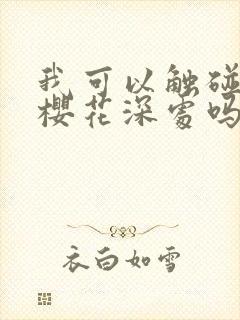 我可以触碰
樱花深处吗
衣白如雪